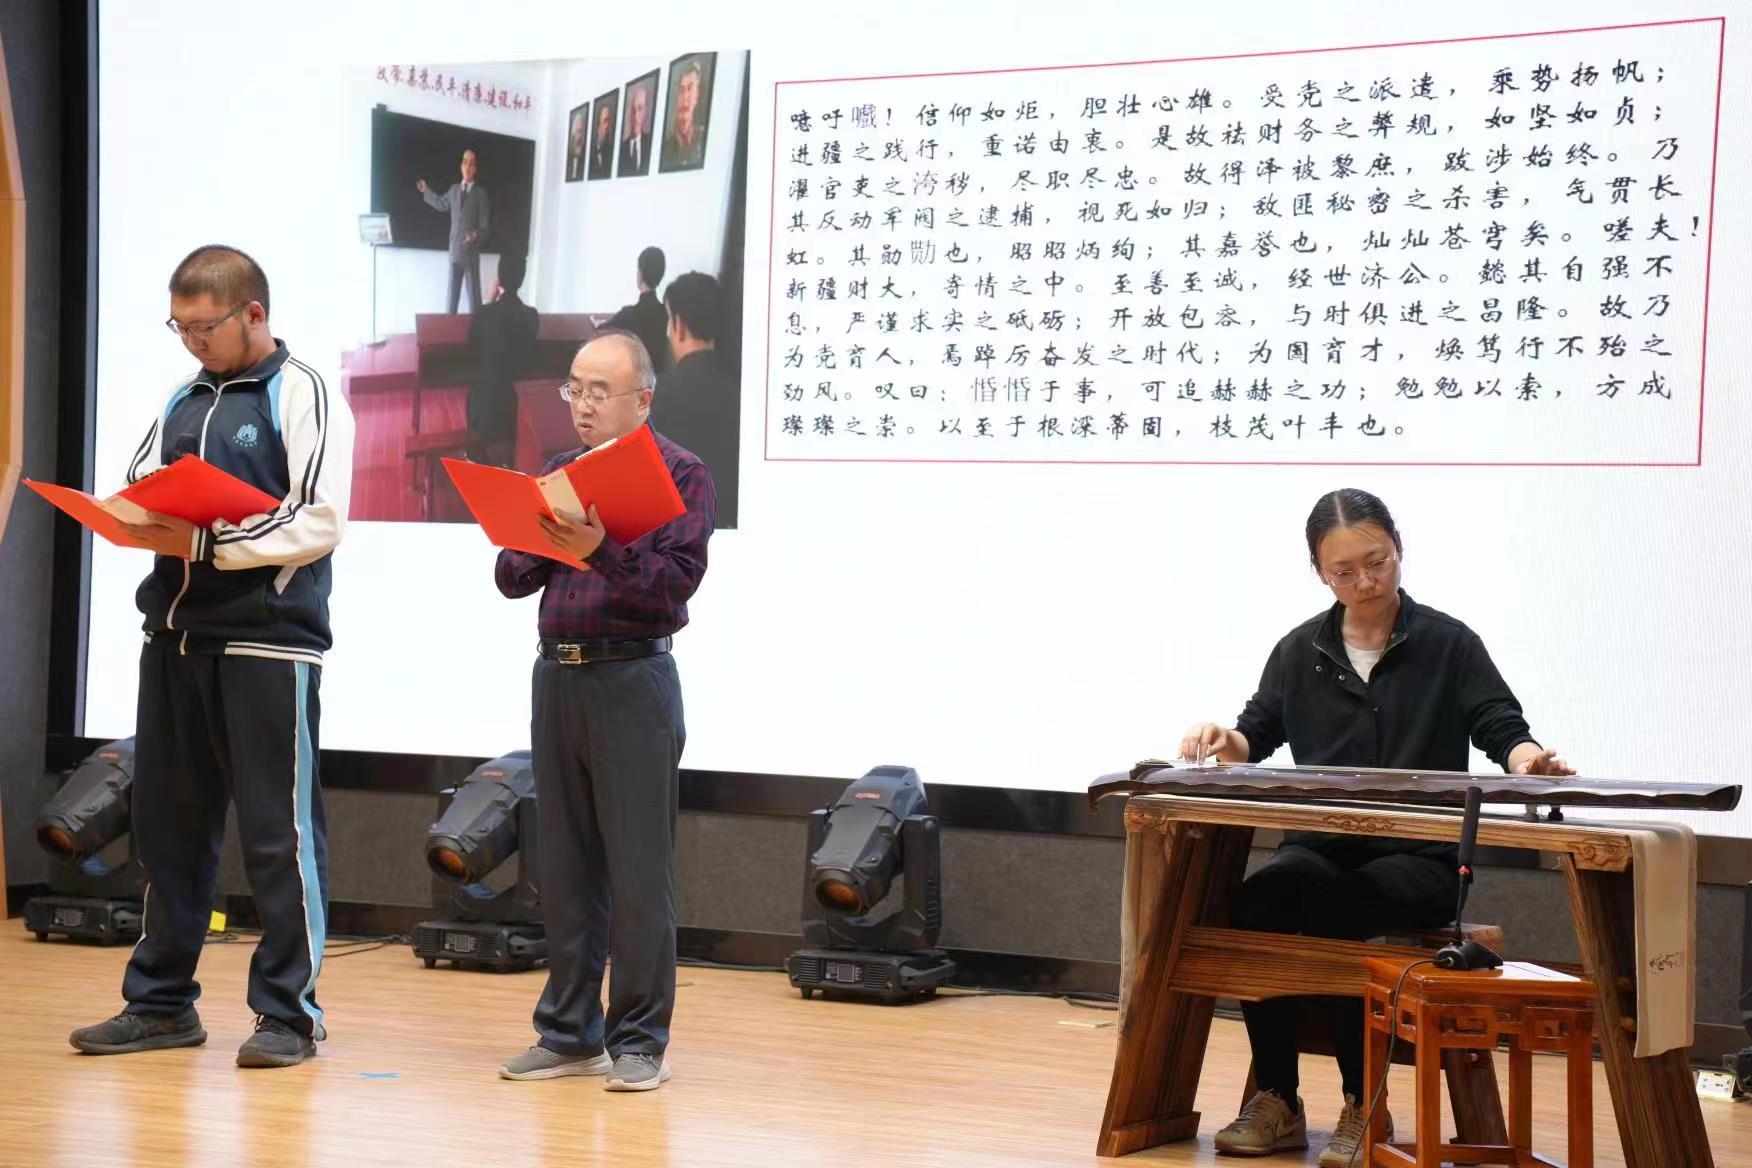 反帝、亲苏、民平、清廉、建设、和平
噫吁嚱！信仰如炬，胆壮心雄。受党之派遣，乘势扬帆；
进疆之践行，重诺由衷。是故祛财务之弊规，如坚如贞；
濯官吏之洿秽，尽职尽忠。故得泽被黎庶，跋涉始终。乃
其反动军阀之逮捕，视死如归；敌匪秘密之杀害，气贯长
虹。其勋勚也，昭昭炳绚；其嘉誉也，灿灿苍穹矣。嗟夫！
新疆财大，寄情之中。至善至诚，经世济公。懿其自强不
息，严谨求实之砥砺；开放包容，与时俱进之昌隆。故乃
为党育人，焉踔厉奋发之时代；为国育才，焕笃行不殆之
劲风。叹曰：惛惛于事，可追赫赫之功；勉勉以索，方成
璨璨之崇。以至于根深蒂固，枝茂叶丰也。